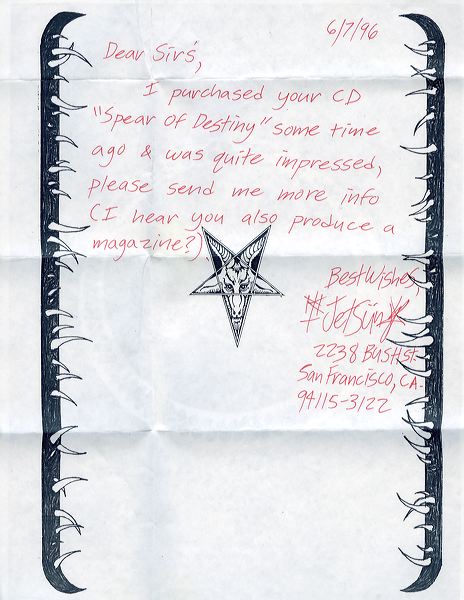 6/7/96
Dear Sirs,
I purchased your CD
"Spear of Destiny" some time
ago & was quite impressed,
please send me more info
(I hear you also produce a
magazine?)
Best Wishes,
Jetsün
2238 BUSH St.
San Francisco, CA.
94115-3122